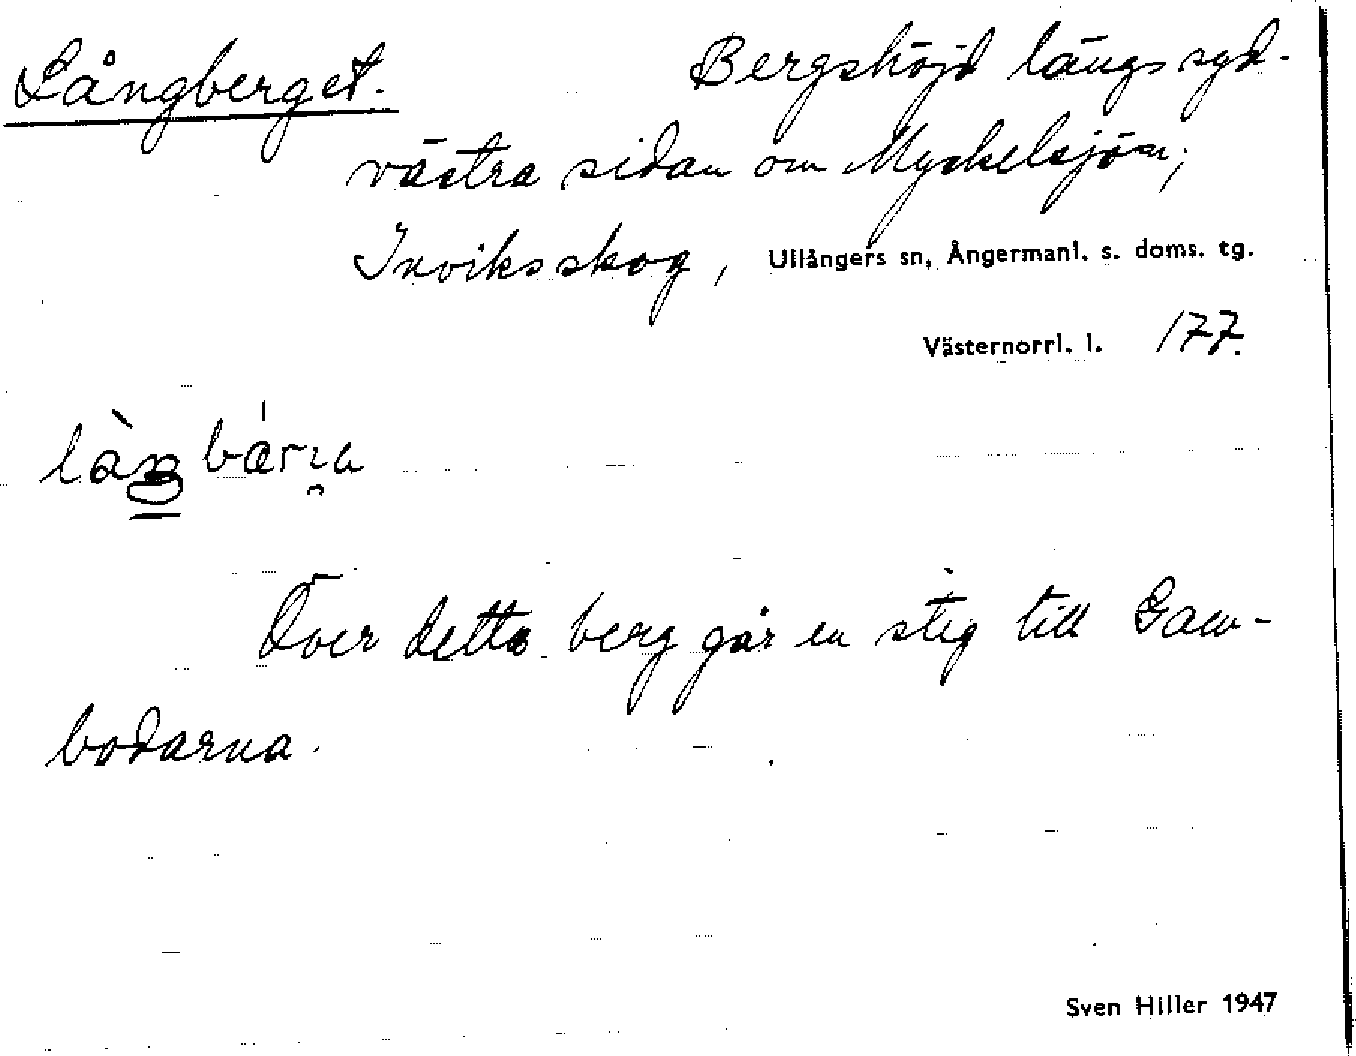 Långberget. Bergshöjd längs syd-
västra sidan om Myckelsjön;
Inviksskog, Ullångers sn, Ångermanl. s. doms. tg.
Västernorrl. l. 177.
Över detta berg går en stig till Gam-
bodarna.
Sven Hiller 1947